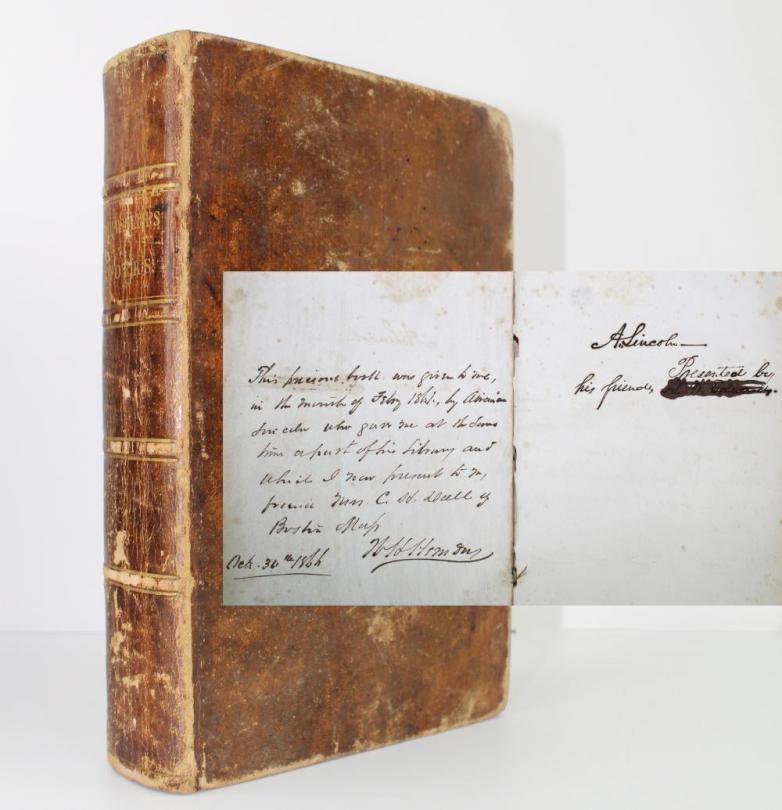 WORKS.
This precious book was given to me,
in the month of Feby 1861, by Abraham
Lincoln who gave me at the same
time a part of his Library and
which I now present to my
friend Mrs. C. H. Dall of
Boston Mass
Oct. 30th 1866
WHHerndon
A. Lincoln—
Presented by
his friend,